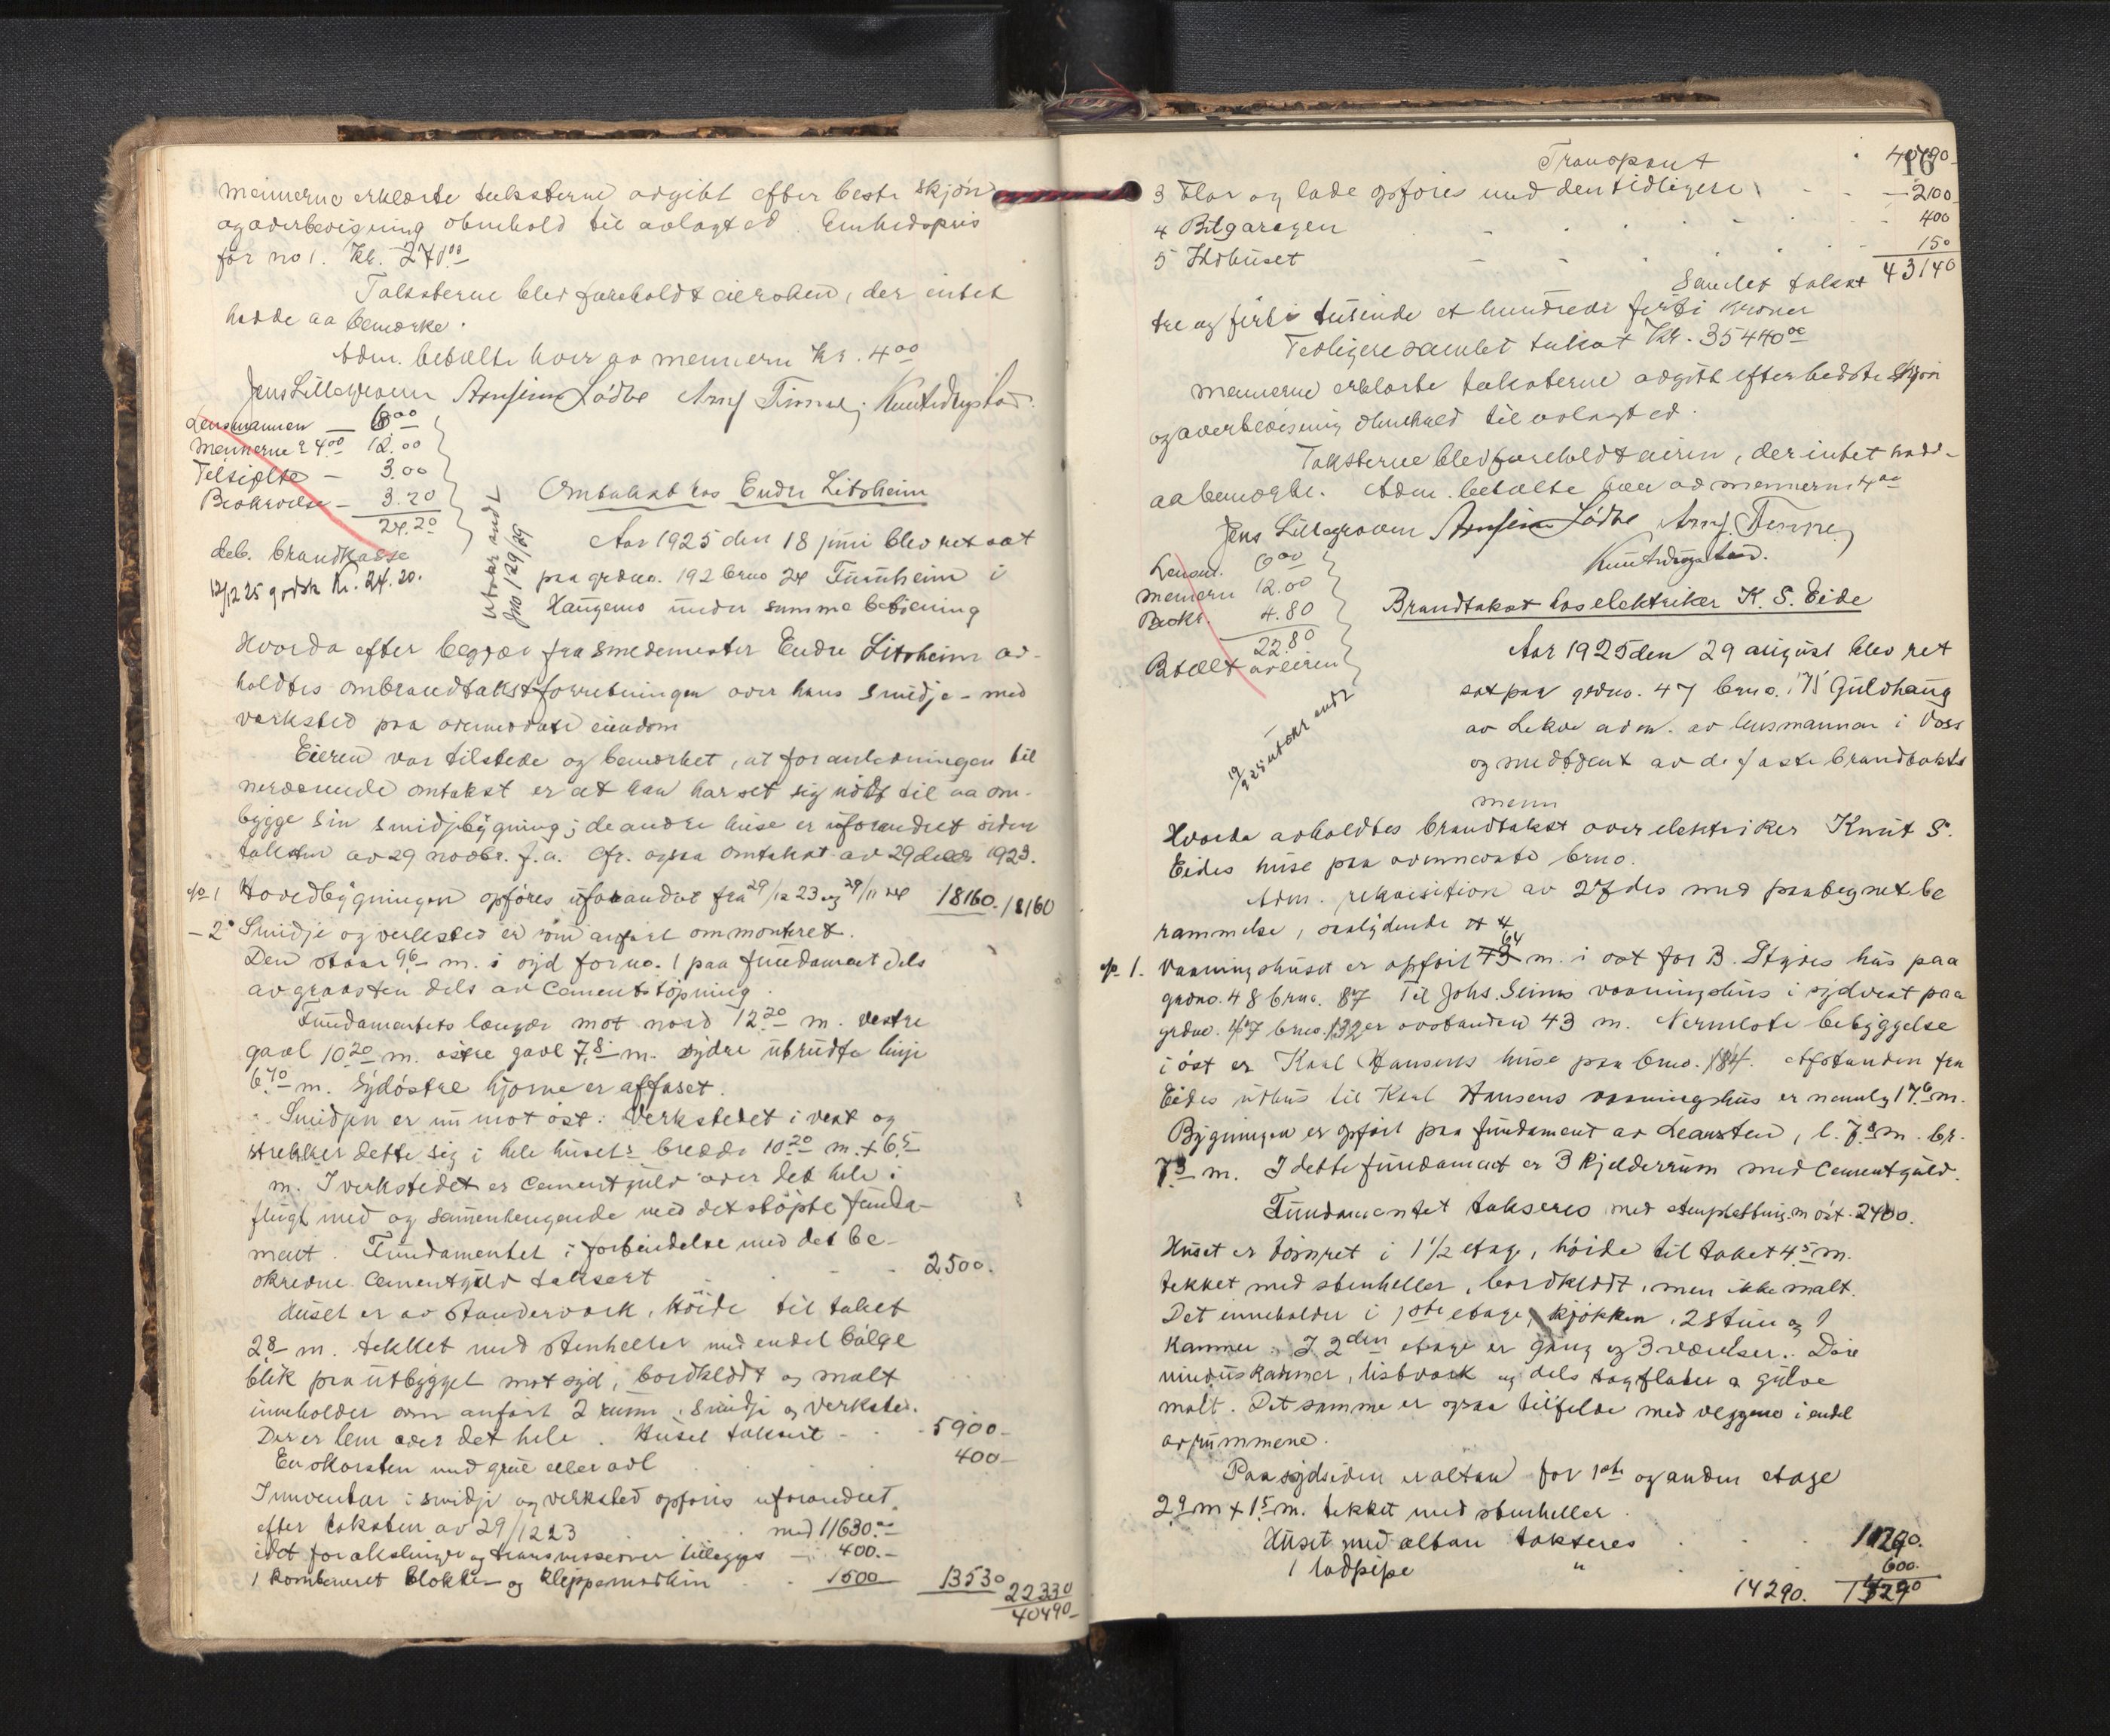 mennerne erklærte taksterne avgitt efter beste skjøn
og overbevisning ohenhold til avlagt ed. Enhedspris
for no 1. Kr. 270.00
Taksterne blev foreholdt eieren, der intet
hadde aa bemerke.
Adm. betalte hver av mennern Kr. 4.00
Jens Lillegraven Arnfinn Lødve Arnf Finne Knut Ringstad
Lensmannen — 6.00
Mennerne à 4.00 12.00
Tilsigelse — 3.00
Beskrivelse — 3.20
24.20
deb. brandkasse
12/12 25 godsk Kr. 24.20.
Utskr sendt
Jno 129/29
Omtakst hos Endre Litsheim
Aar 1925 den 18 juni blev ret sat
paa grdno. 192 brno 24 Tunheim i
Haugens under samme betjening
Hvorda efter begjær fra smedemester Endre Litsheim av-
holdtes ombrandtakstforretningen over hans smidje - med
verksted paa ovennevnte eiendom
Eieren var tilstede og bemerket, at foranledningen til
nerværende omtakst er at han har set sig nødt til aa om-
bygge sin smidjebygning; de andre huse er uforandret siden
taksten av 29 novbr. f.a. Cfr. ogsaa omtakst av 29 decbr 1923.
No 1 Hovedbygningen opføres uforandret fra 29/12 23 og 29/11 24 18160. 18160
- 2 Smidje og verksted er som anført ommonteret.
Den staar 9.6 m. i syd for no. 1 paa fundament dels
av graasten dels av cementstøpning.
Fundamentets længde mot nord 12.20 m. vestre
gavl 10.20 m. østre gavl 7.8 m. sydre utbrudte linje
6.70 m. Sydøstre hjørne er affaset.
Smidjen er nu mot øst: Verkstedet i vest og
strekker dette sig i hele husets bredde 10.20 m. + 6.5
m. I verkstedet er cementgulv over det hele i
flugt med og sammenhengende med det støpte funda-
ment. Fundamentet i forbindelse med det be-
skrevne cementgulv taksert 2500.
Huset er av standerverk, høide til taket
2.8 m. tekket med stenheller med endel bølge
blik paa utbygget mot syd, bordkledt og malt
inneholder som anført 2 rum, smidje og verksted.
Der er lem over det hele. Huset taksert 5900 -
En skorsten med grue eller avl 400 -
Innventar i smidje og verksted opføres uforandret
efter taksten av 29/12 23 med 11630.00
idet for akslinger og transmisjoner tillegges - 400.-
1 kombineret blokke- og klippemaskin 1500 13530 22330
40490 -
16
Transport 40490 -
3 Flor og lade opføres med den tidligere — 2100
4 Bilgaragen 400
5 Ildhuset 150
Samlet takst 43140
tre og førti tusinde et hundrede førti kroner
Tidligere samlet takst Kr. 35440.00
Mennerne erklærte taksterne avgitt efter bedste skjøn
og overbevisning ohenhold til avlagt ed.
Taksterne blev foreholdt eieren, der intet hadde
aa bemerke. Adm. betalte hver av mennerne 4.00
Jens Lillegraven Arnfinn Lødve Arnf. Finne
Knut Ringstad.
Lensm. 6.00
Mennern 12.00
Beskr. 4.80
22.80
Betalt av eieren
19/9 25 utskr sendt
Brandtakst hos elektriker K. S. Eide
Aar 1925 den 29 august blev ret
sat paa grdno. 47 brno. 175 Guldhaug
av Lekve adm. av lensmannen i Voss
og medtient av de faste brandtakst
menn
Hvorda avholdtes brandtakst over elektriker Knut S.
Eides huse paa ovennevnte brno.
Adm. rekvisition av 27 des med paategnet be
rammelse, saalydende # 4
No. 1. Vaaningshuset er opført 64 m. i øst for B. Stydes hus paa
grdno. 48 brno. 87 Til Johs. Seims vaaningshus i sydvest paa
grdno. 47 brno. 132 er avstanden 43 m. Nermeste bebyggelse
i øst er Karl Hansens huse paa brno. 184. Afstanden fra
Eides uthus til Karl Hansens vaaningshus er nemlig 17.6 m.
Bygningen er opført paa fundament av learsten, l. 7.8 m. br.
7.3 m. I dette fundament er 3 kjelderrum med cementgulv.
Fundamentet takseres med
Huset er tømret i 1 1/2 etage, høide til taket 4.5 m.
tekket med stenheller, bordkledt, men ikke malt.
Det inneholder i 1ste etage, kjøkken, 2 stuer og 1
kammer. I 2den etage er gang og 3 værelser. Døre
vinduskarmer, listverk og dels tagflater og gulve
malt. Det samme er ogsaa tilfelde med veggene i endel
av rummene.
Paa sydsiden er altan for 1ste og anden etage
2.9 m + 1.5 m. tekket med stenheller.
Huset med altan takseres 11290.
1 ladpipe " 600.
14290. 14290